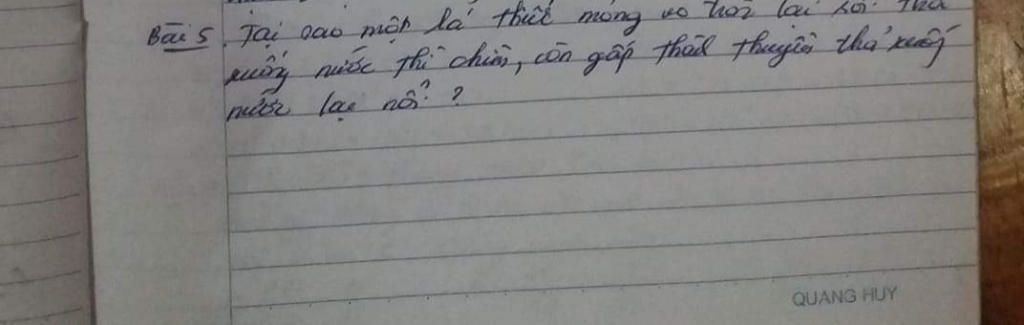 Bài 5. Tại sao một lá thiếc mỏng vo tròn lại rồi thả
xuống nước thì chìm, còn gấp thành thuyền thả xuống
nước lại nổi?
QUANG HUY